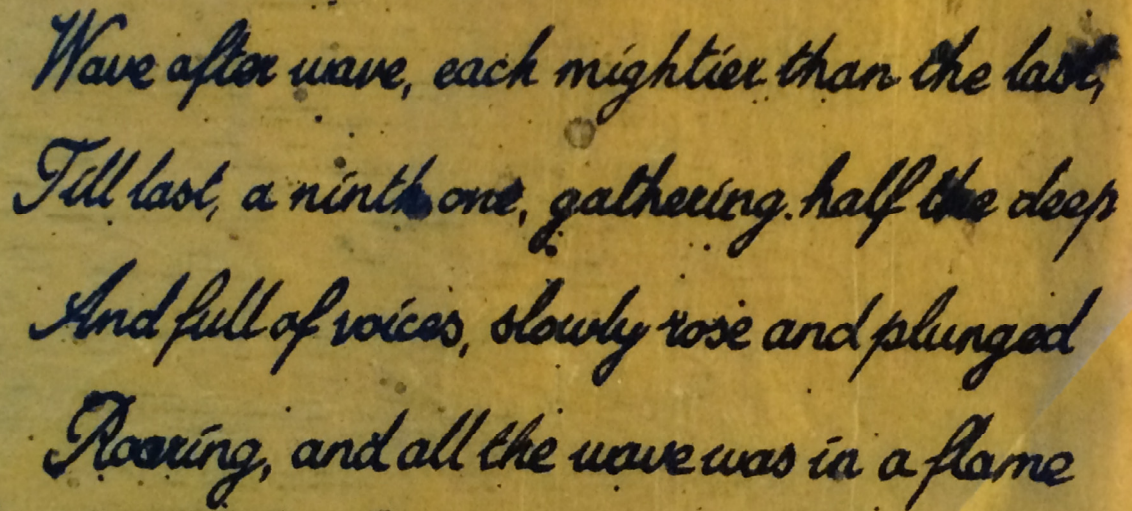 Wave after wave, each mightier than the last,
Till last, a ninth one, gathering half the deep
And full of voices, slowly rose and plunged
Roaring, and all the wave was in a flame